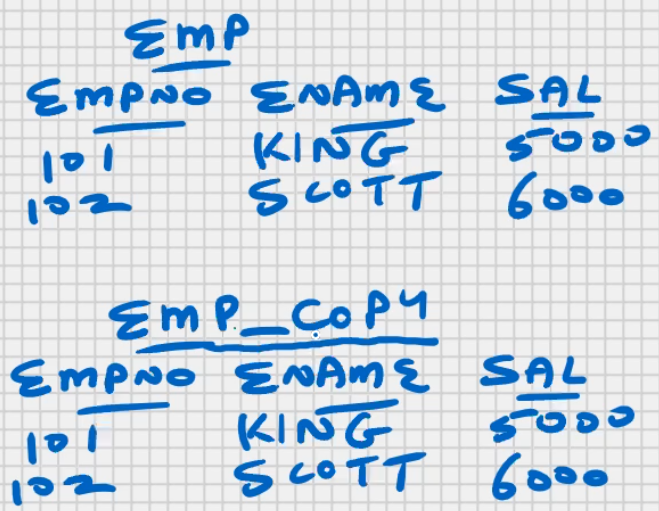 EMP
EMPNO ENAME SAL
101 KING 5000
102 SCOTT 6000
EMP_COPY
EMPNO ENAME SAL
101 KING 5000
102 SCOTT 6000